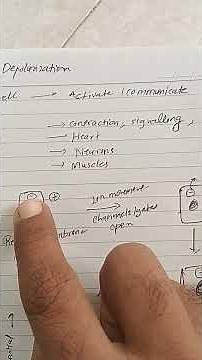 Depolarization
ell → Activate / communicate
→ contraction, signalling,
→ Heart
→ Neurons
→ Muscles
⊖ ⊕ Ion movement
→
channels/gates
open